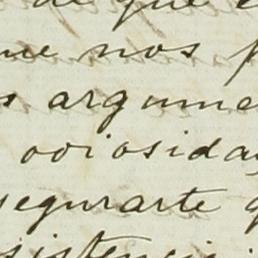 de que e
me nos p
s argume
ooiosida
segurarte q
sistencia